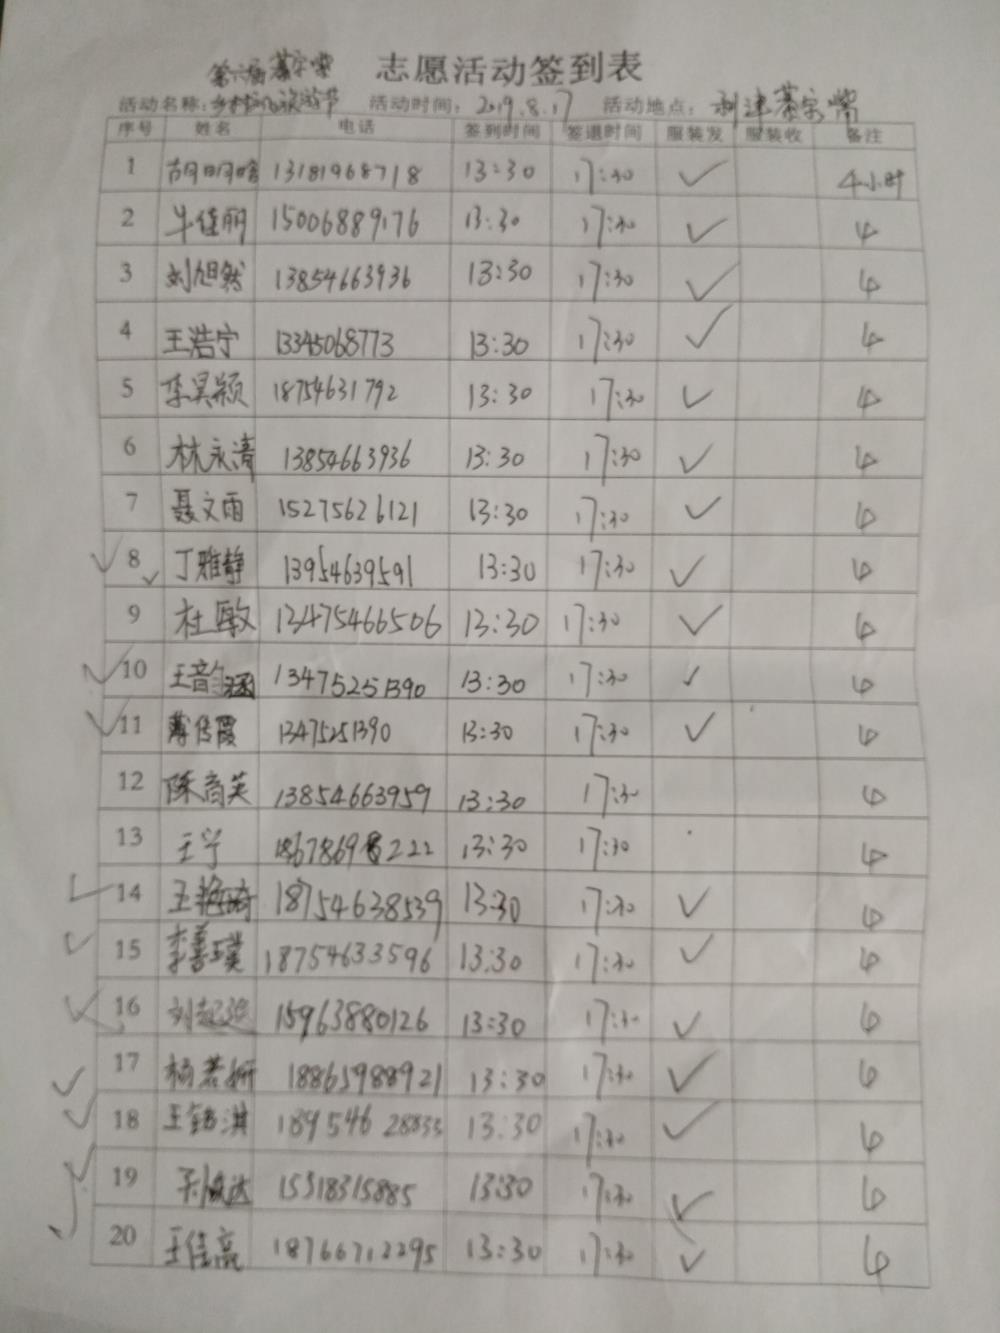 志愿活动签到表
第六届綦家嘴
活动名称：乡村文化旅游节 活动时间：2019.8.17 活动地点：利津綦家嘴
序号 姓名 电话 签到时间 签退时间 服装发 服装收 备注
1 胡明晗 13181968718 13:30 17:30 ✓ 4小时
2 牛佳丽 15006889176 13:30 17:30 ✓ 4
3 刘旭然 13854663936 13:30 17:30 ✓ 4
4 王浩宁 13345068773 13:30 17:30 ✓ 4
5 李昊颖 18754631792 13:30 17:30 ✓ 4
6 林永涛 13854663936 13:30 17:30 ✓ 4
7 聂文雨 15275626121 13:30 17:30 ✓ 4
8 丁雅静 13954639591 13:30 17:30 ✓ 4
9 杜敏 13475466506 13:30 17:30 ✓ 4
10 王韵涵 13475251390 13:30 17:30 ✓ 4
11 薄传霞 13475251390 13:30 17:30 ✓ 4
12 陈育英 13854663959 13:30 17:30 4
13 王宁 13:30 17:30 4
14 王艳琦 18754638539 13:30 17:30 ✓ 4
15 李善璞 18754633596 13:30 17:30 ✓ 4
16 刘起延 15963880126 13:30 17:30 ✓ 4
17 杨若妍 18865988921 13:30 17:30 ✓ 4
18 13:30 17:30 ✓ 4
19 15318315885 13:30 17:30 ✓ 4
20 王佳亮 18766712295 13:30 17:30 ✓ 4